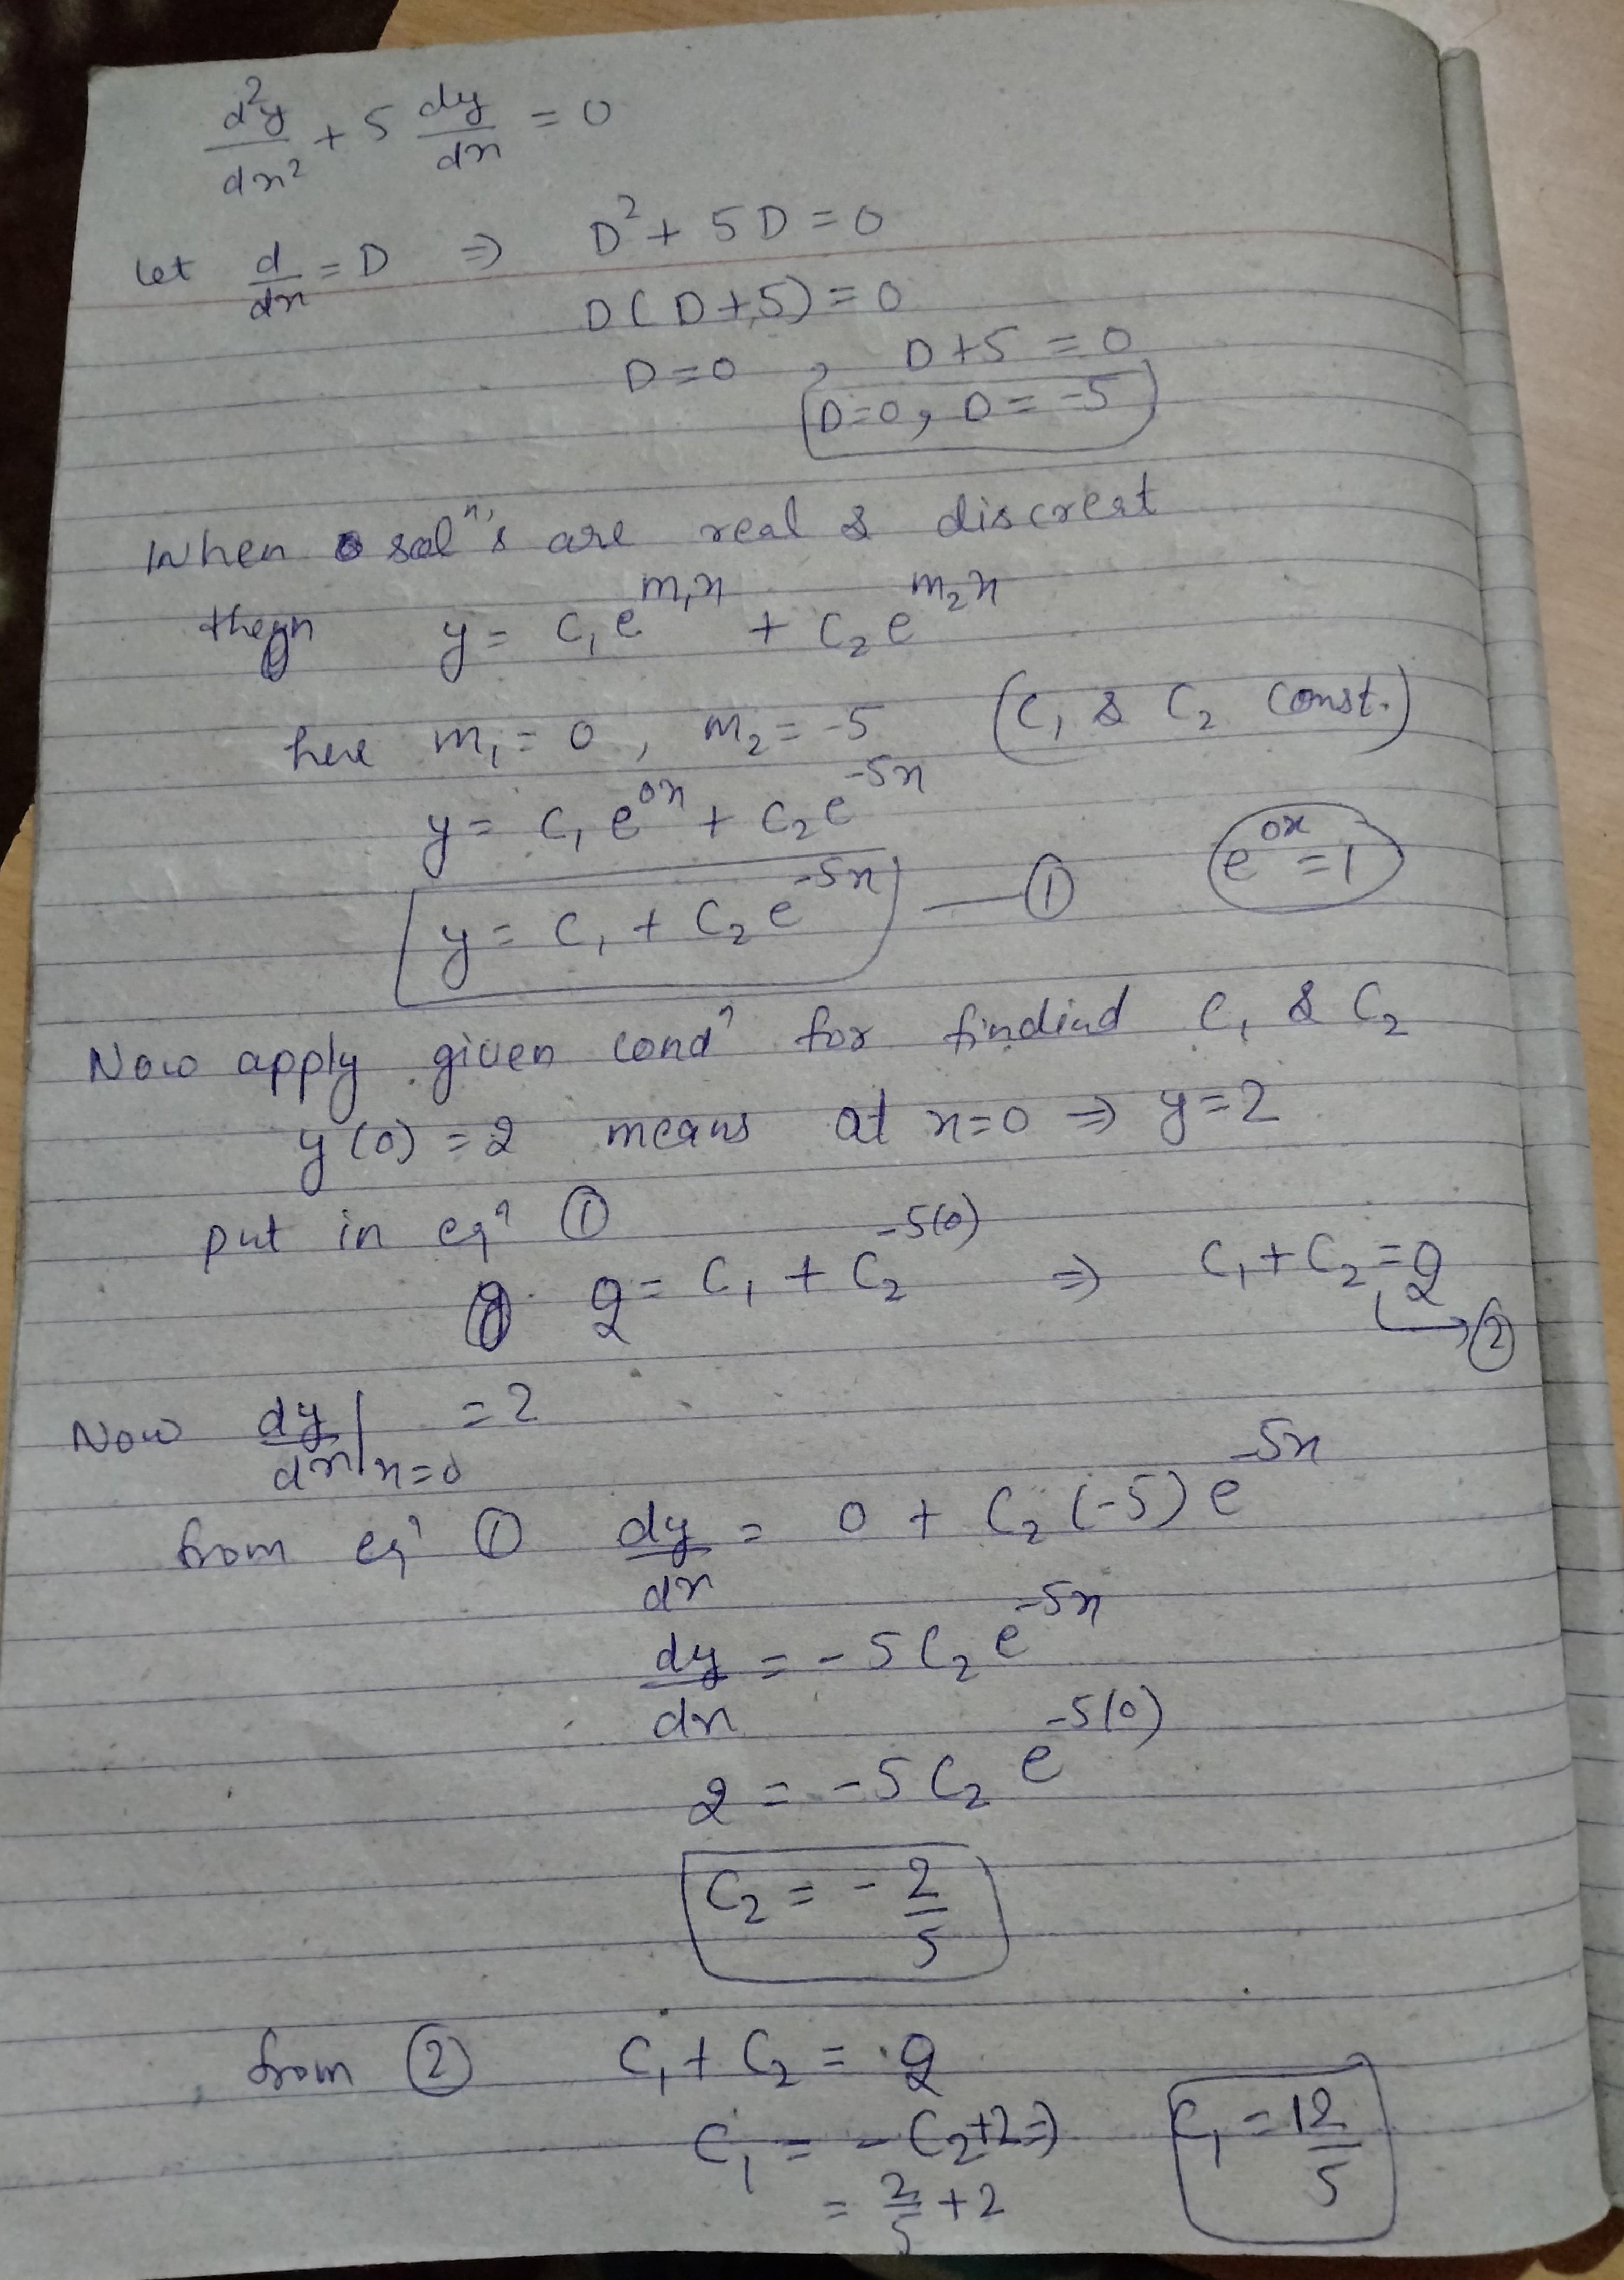 d²y/dx² + 5 dy/dx = 0
Let d/dx = D ⇒ D² + 5D = 0
D(D+5) = 0
D=0 , D+5 = 0
D=0, D= -5
When solⁿ's are real & discreat
then y = C₁e^m₁x + C₂e^m₂x
here m₁ = 0, m₂ = -5 (C₁ & C₂ const.)
y = C₁e^0x + C₂e^-5x
y = C₁ + C₂e^-5x — ① e^0x = 1
Now apply given condⁿ for findind C₁ & C₂
y(0) = 2 means at x=0 ⇒ y=2
put in eqⁿ ①
2 = C₁ + C₂^-5(0) ⇒ C₁ + C₂ = 2 → ②
Now dy/dx|x=0 = 2
from eqⁿ ① dy/dx = 0 + C₂(-5)e^-5x
dy/dx = -5C₂e^-5x
2 = -5C₂ e^-5(0)
C₂ = -2/5
from ② C₁ + C₂ = 2
C₁ = -C₂+2 ⇒ C₁ = 12/5
= 2/5 + 2